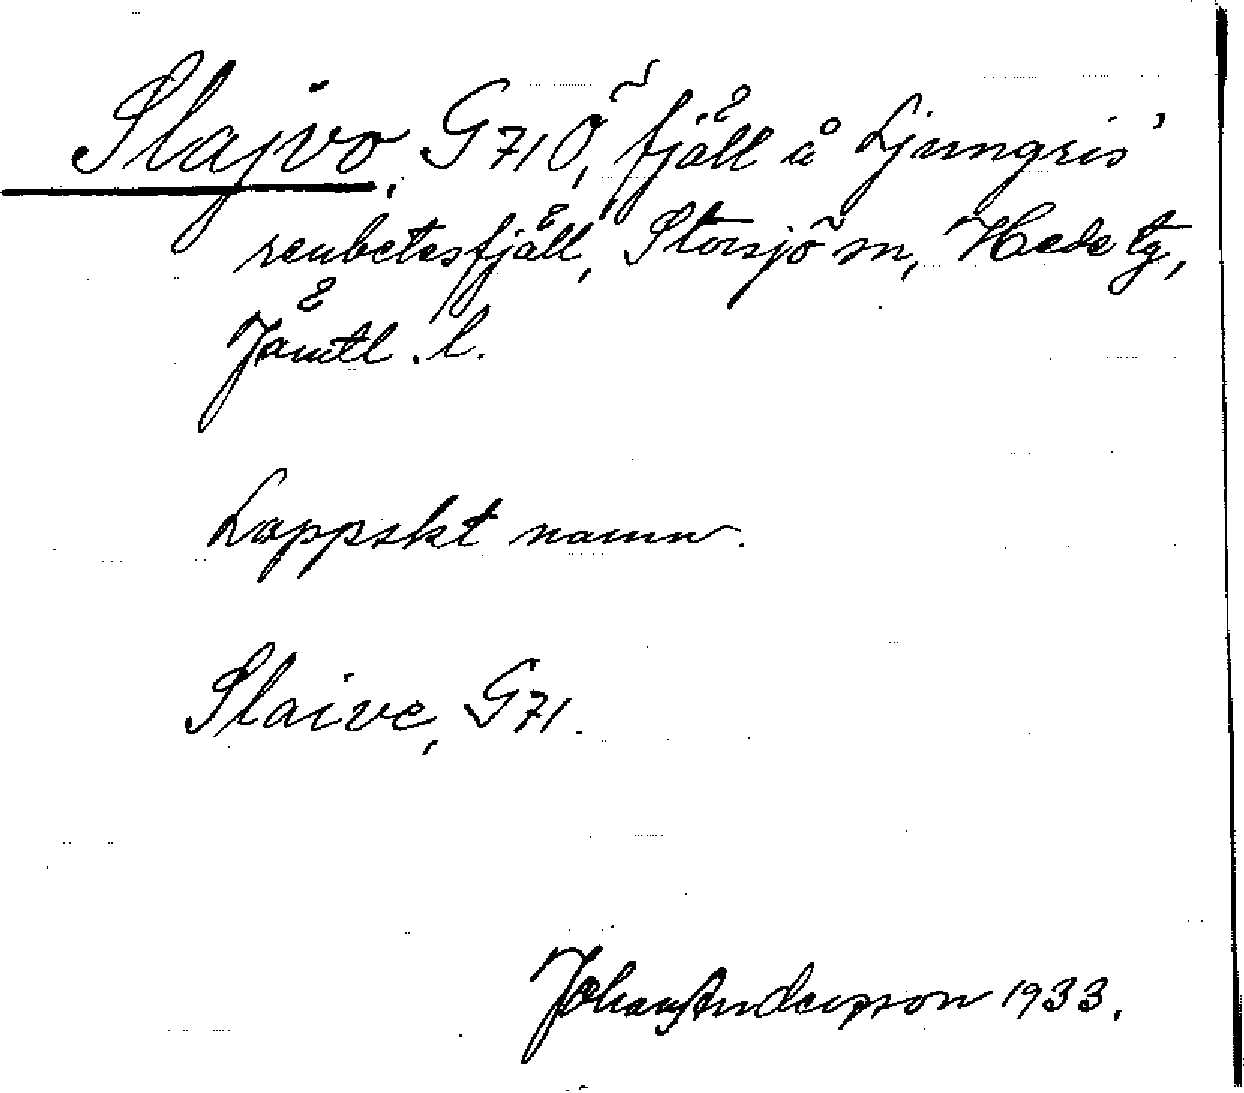 Slajvo, G71Ö, fjäll å Ljungris'
renbetesfjäll, Storsjö sn, Hede tg,
Jämtl. l.
Lappskt namn.
Slaive, G71.
Johan Andersson 1933.